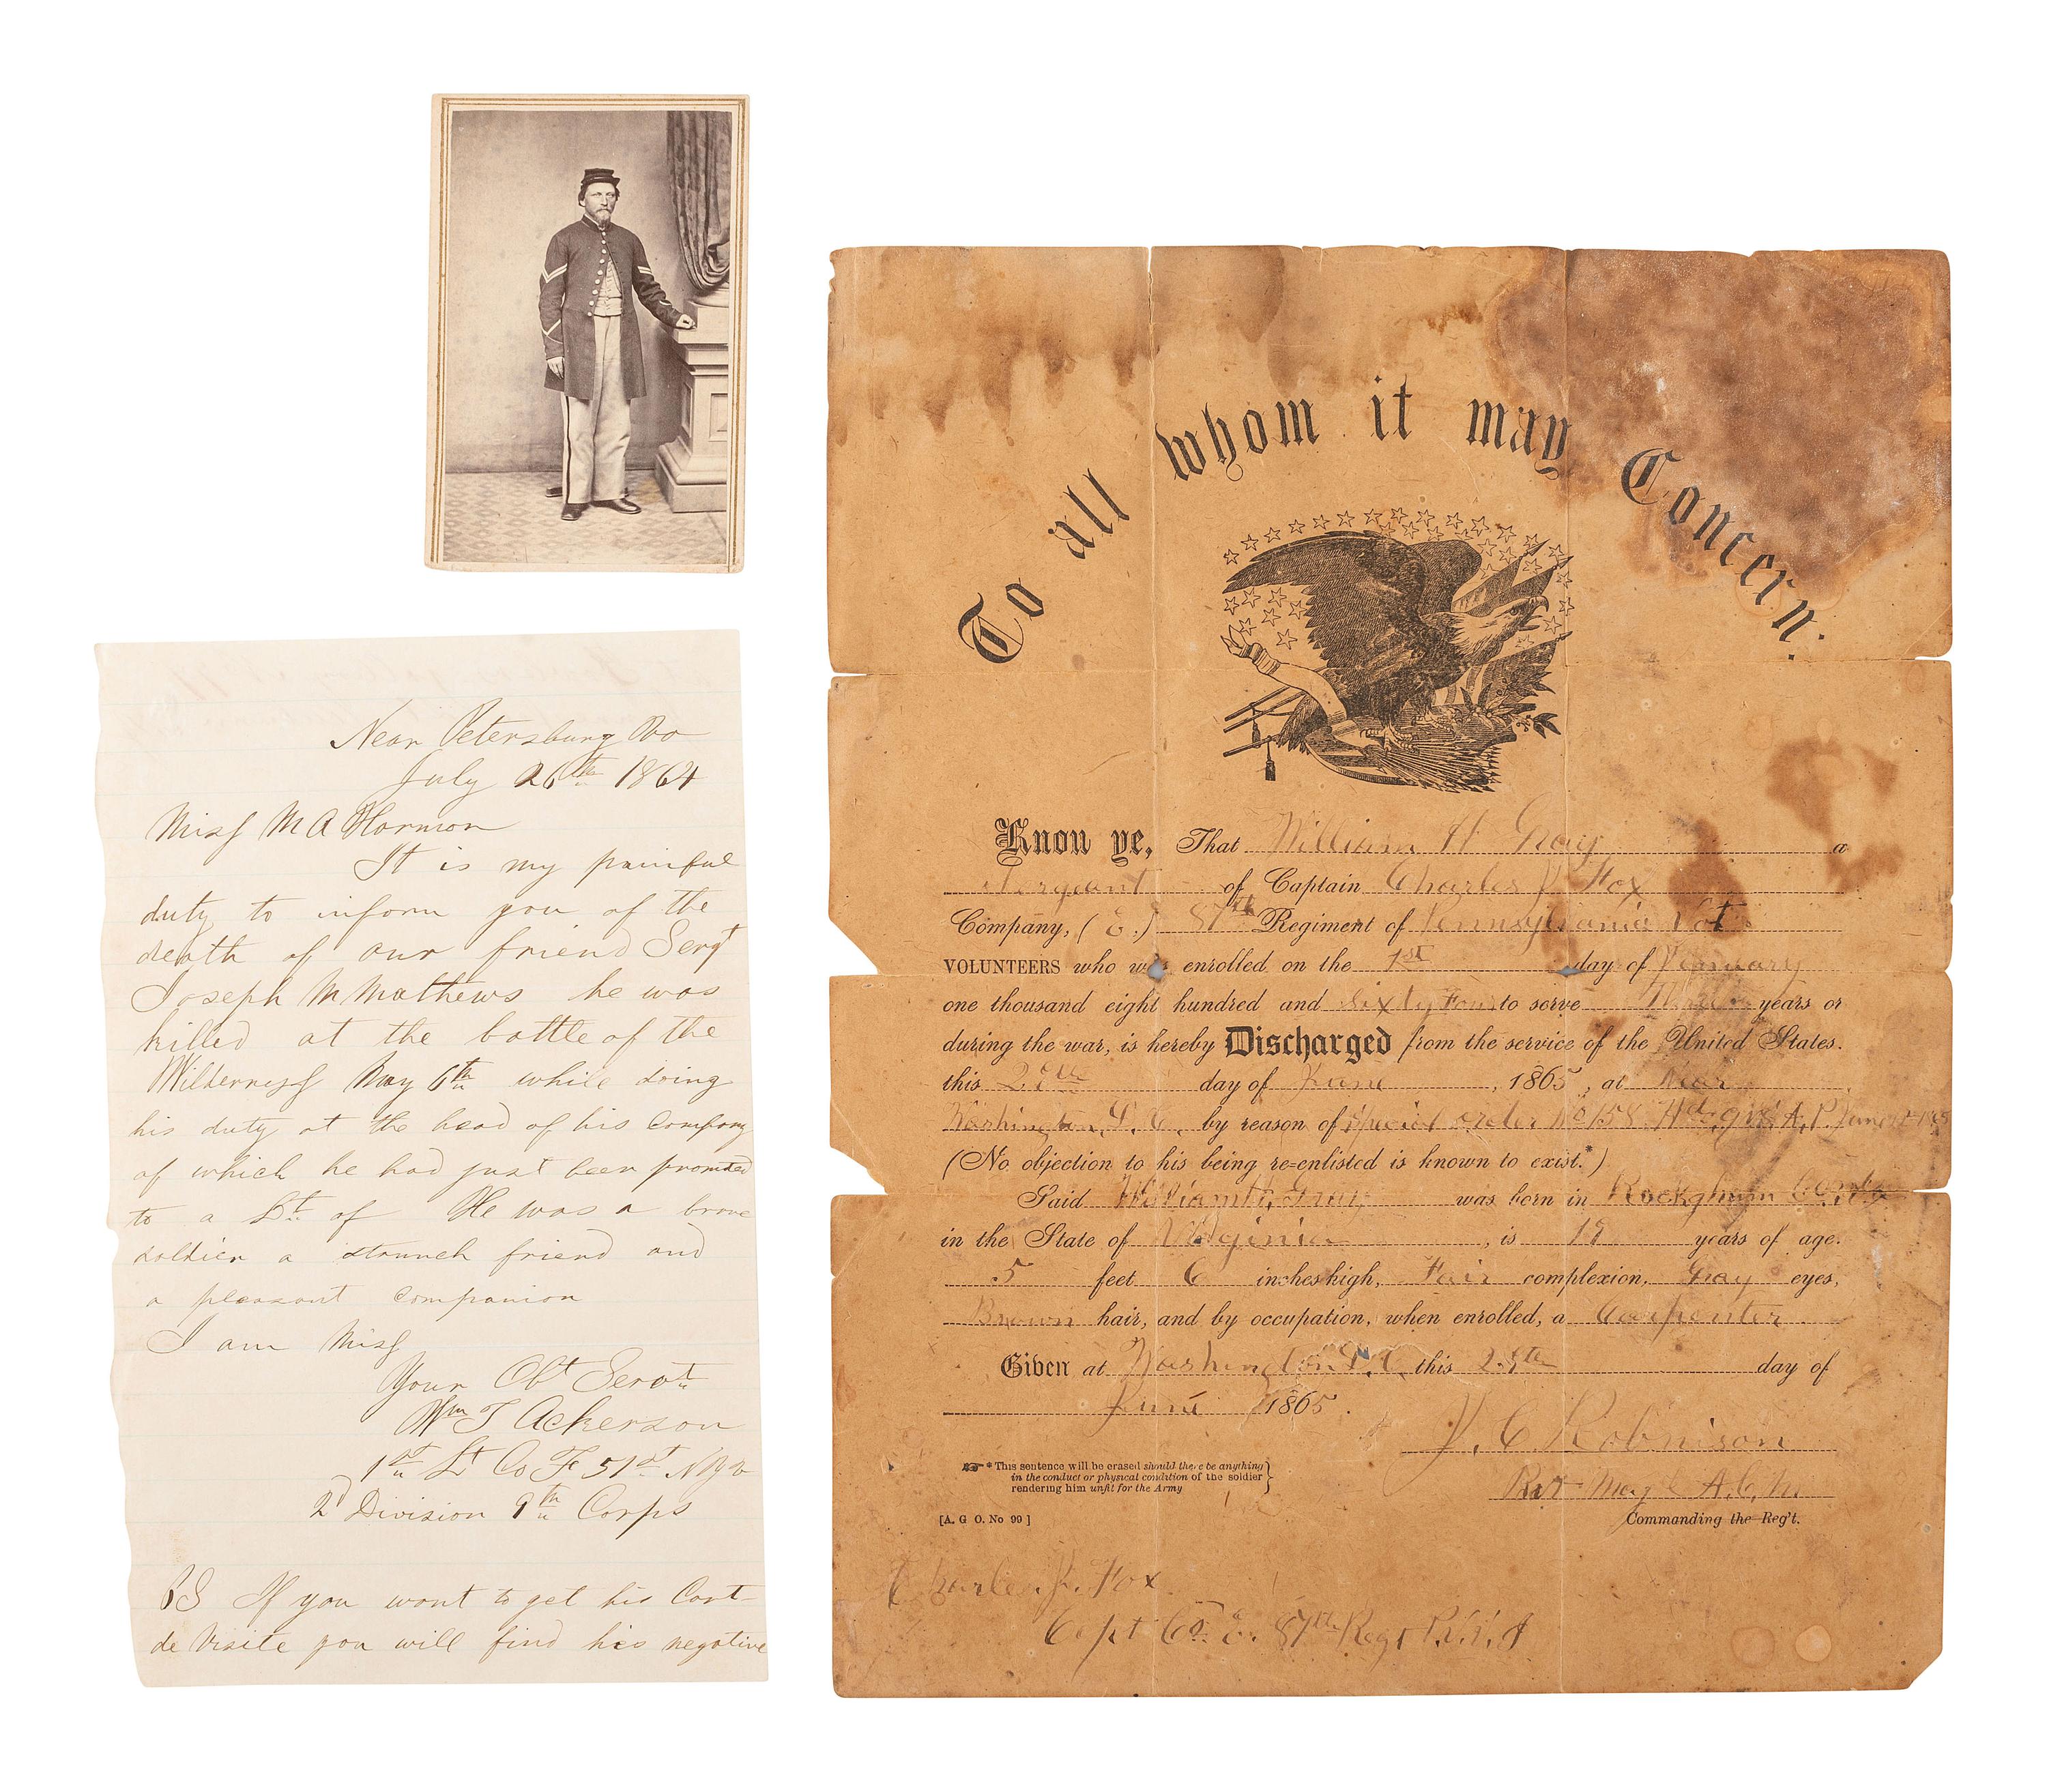 Near Petersburg Va
July 26th 1864
Miss M A Harmon
It is my painful
duty to inform you of the
death of our friend Sergt
Joseph M Mathews he was
killed at the battle of the
Wilderness May 6th while doing
his duty at the head of his Company
of which he had just been promoted
to a Lt of He was a brave
soldier a staunch friend and
a pleasant companion
I am Miss
Your Obt Servt
Wm T Ackerson
1st Lt Co F 51st N Y V
2d Division 9th Corps
PS If you want to get his Cart
de Visite you will find his negative
To all whom it may Concern.
Know ye, That William H Gray a
Sergeant of Captain Charles J. Fox
Company, (E.) 87th Regiment of Pennsylvania Vet
VOLUNTEERS who was enrolled on the 1st day of
one thousand eight hundred and Sixty Four to serve Three years or
during the war, is hereby Discharged from the service of the United States.
this day of June, 1865, at Near
Washington, D. C. by reason of Special Order No 158 A.P. June
(No objection to his being re-enlisted is known to exist.*)
Said William H. Gray was born in
in the State of Virginia, is 19 years of age.
5 feet 6 inches high, Fair complexion, Gray eyes,
Brown hair, and by occupation, when enrolled, a Carpenter.
Given at Washington D. C. this 29th day of
June 1865.
Robinson
☞ * This sentence will be erased should there be anything
in the conduct or physical condition of the soldier
rendering him unfit for the Army
Commanding the Reg't.
[A. G O. No 99]
Charles J. Fox
Capt Co. E. 87th Regt P. V. I